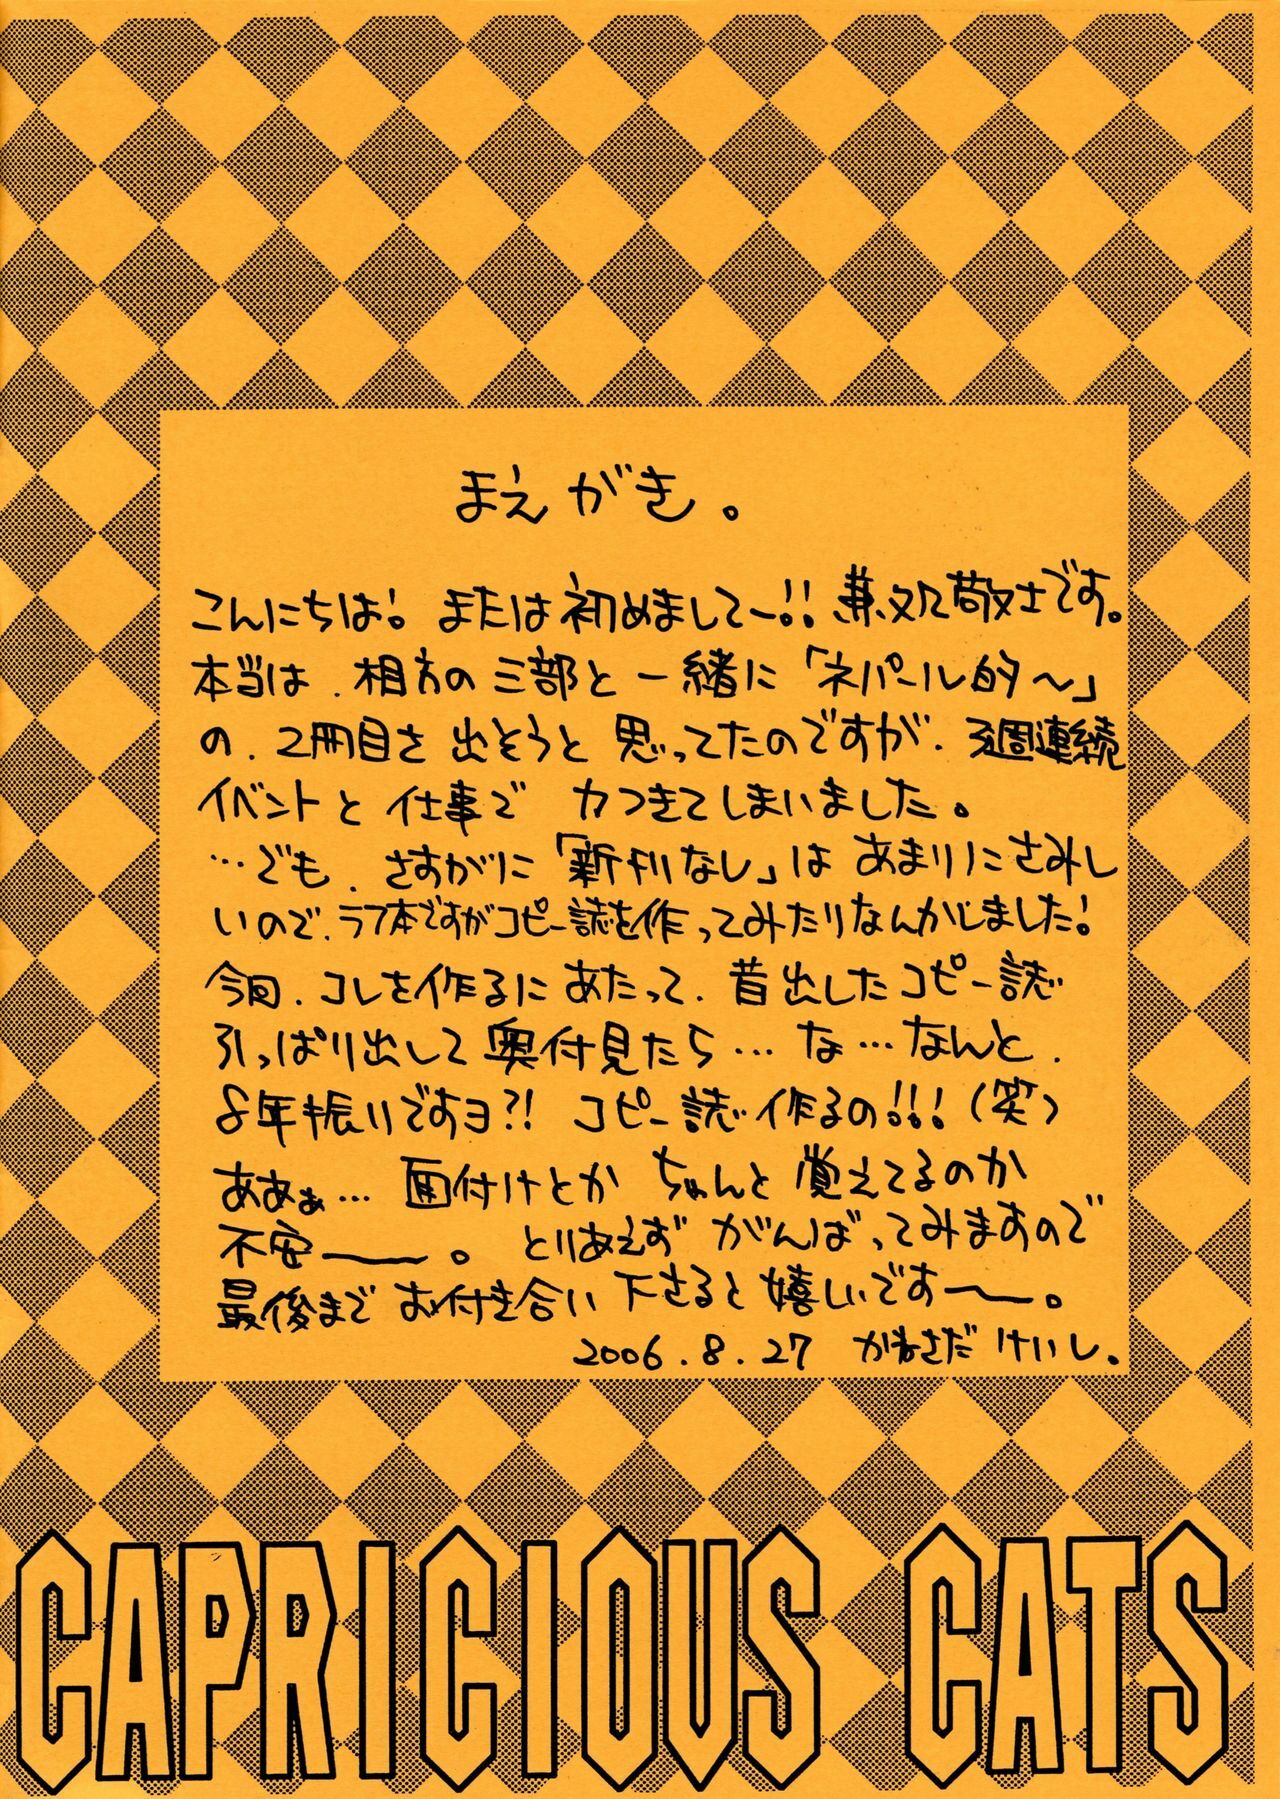 まえがき。
こんにちは！または初めましてー!! 兼処敬士です。
本当は、相方の三部と一緒に「ネパール的〜」
の、2冊目を出そうと思ってたのですが、3週連続
イベントと仕事で力つきてしまいました。
…でも、さすがに「新刊なし」はあまりにさみし
いので、ラフ本ですがコピー誌を作ってみたりなんかしました！
今回、コレを作るにあたって、昔出したコピー誌
引っぱり出して奥付見たら…な…なんと、
8年振りですヨ?! コピー誌作るの!!!(笑)
ああぁ…面付けとかちゃんと覚えてるのか
不安――。とりあえずがんばってみますので
最後までお付き合い下さると嬉しいです〜。
2006.8.27 かねさだけいし。
CAPRICIOUS CATS